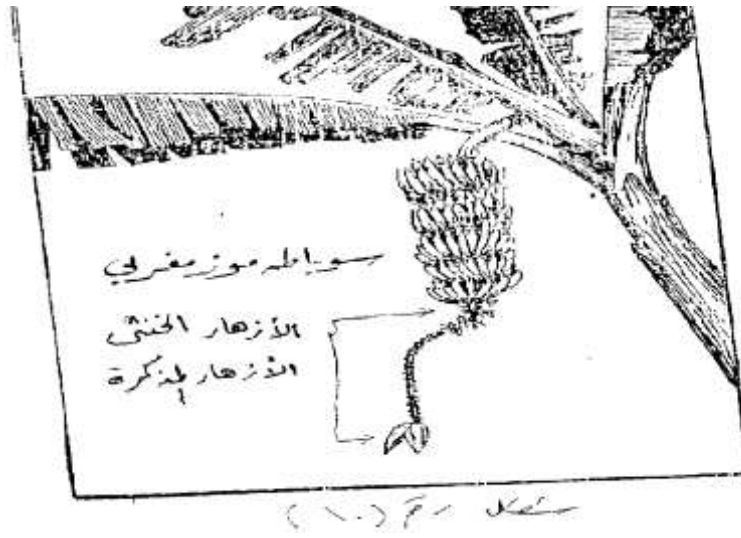 سوباطه موز مغربي
الأزهار الخنثى
الأزهار المذكرة
شكل رقم (١٠)